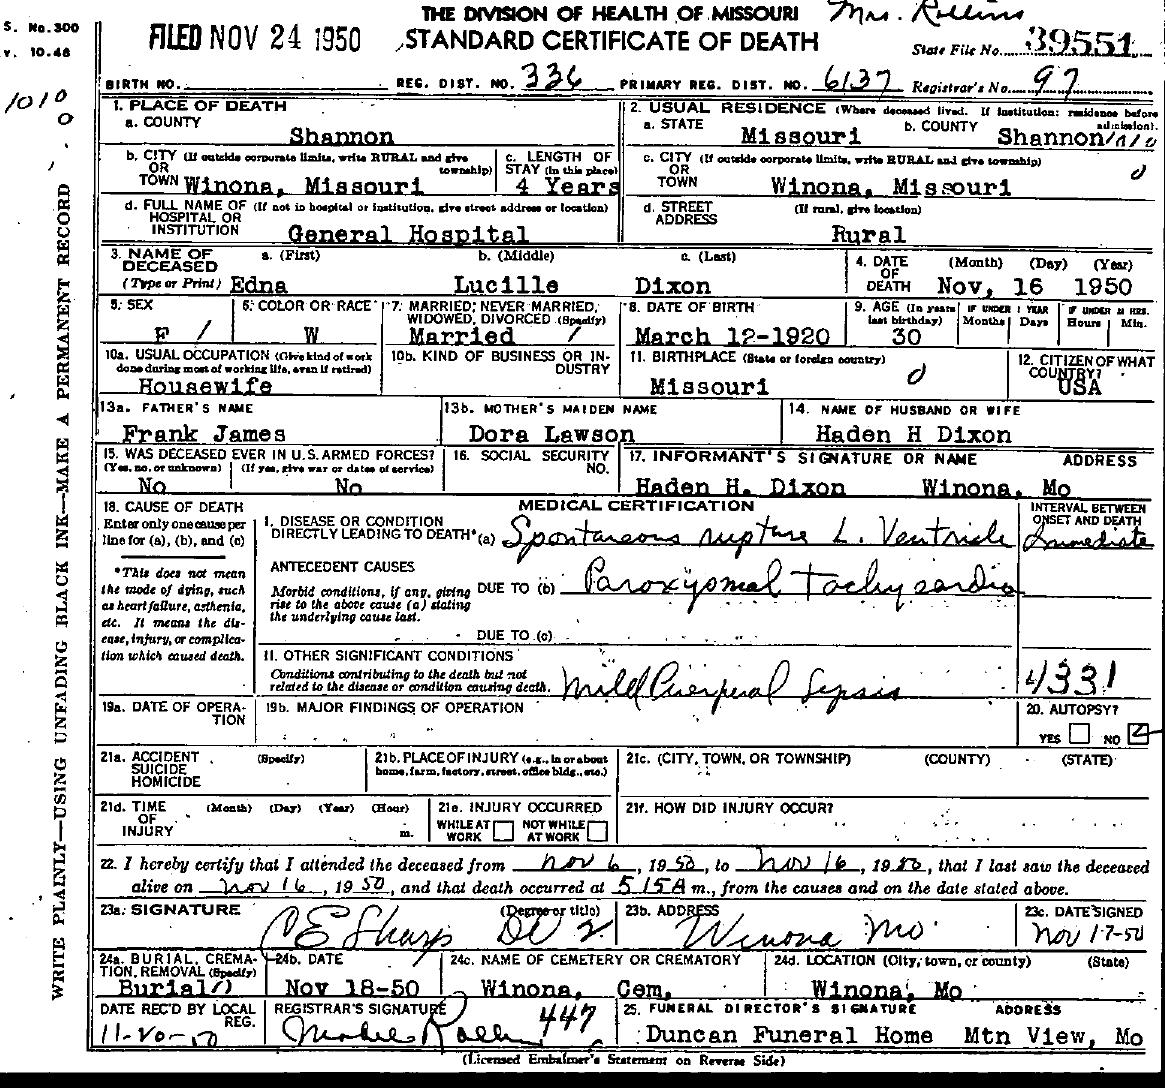 THE DIVISION OF HEALTH OF MISSOURI Mrs. Rollins
S. No. 300
v. 10.48
FILED NOV 24 1950
STANDARD CERTIFICATE OF DEATH
State File No. 39551
BIRTH NO. REG. DIST. NO. 336 PRIMARY REG. DIST. NO. 6137 Registrar's No. 97
1010
0
1. PLACE OF DEATH
a. COUNTY
Shannon
2. USUAL RESIDENCE (Where deceased lived. If institution: residence before admission).
a. STATE Missouri b. COUNTY Shannon
b. CITY (If outside corporate limits, write RURAL and give township)
OR
TOWN Winona, Missouri
c. LENGTH OF STAY (in this place)
4 Years
c. CITY (If outside corporate limits, write RURAL and give township)
OR
TOWN Winona, Missouri
0
d. FULL NAME OF (If not in hospital or institution, give street address or location)
HOSPITAL OR
INSTITUTION General Hospital
d. STREET ADDRESS (If rural, give location)
Rural
3. NAME OF DECEASED (Type or Print)
a. (First) b. (Middle) c. (Last)
Edna Lucille Dixon
4. DATE OF DEATH (Month) (Day) (Year)
Nov, 16 1950
5. SEX
F /
6. COLOR OR RACE
W
7. MARRIED, NEVER MARRIED, WIDOWED, DIVORCED (Specify)
Married /
8. DATE OF BIRTH
March 12-1920
9. AGE (In years last birthday)
30
IF UNDER 1 YEAR
Months Days
IF UNDER 24 HRS.
Hours Min.
10a. USUAL OCCUPATION (Give kind of work done during most of working life, even if retired)
Housewife
10b. KIND OF BUSINESS OR INDUSTRY
11. BIRTHPLACE (State or foreign country)
Missouri 0
12. CITIZEN OF WHAT COUNTRY?
USA
13a. FATHER'S NAME
Frank James
13b. MOTHER'S MAIDEN NAME
Dora Lawson
14. NAME OF HUSBAND OR WIFE
Haden H Dixon
15. WAS DECEASED EVER IN U.S. ARMED FORCES?
(Yes, no, or unknown) (If yes, give war or dates of service)
No No
16. SOCIAL SECURITY NO.
17. INFORMANT'S SIGNATURE OR NAME ADDRESS
Haden H. Dixon Winona, Mo
18. CAUSE OF DEATH
Enter only one cause per line for (a), (b), and (c)
*This does not mean the mode of dying, such as heart failure, asthenia, etc. It means the disease, injury, or complication which caused death.
MEDICAL CERTIFICATION
INTERVAL BETWEEN ONSET AND DEATH
I. DISEASE OR CONDITION DIRECTLY LEADING TO DEATH* (a) Spontaneous rupture L. Ventricle Immediate
ANTECEDENT CAUSES
Morbid conditions, if any, giving rise to the above cause (a) stating the underlying cause last.
DUE TO (b) Paroxyomal Tachycardia
DUE TO (c)
11. OTHER SIGNIFICANT CONDITIONS
Conditions contributing to the death but not related to the disease or condition causing death.
Mild Puerperal Sepsis
4331
19a. DATE OF OPERATION
19b. MAJOR FINDINGS OF OPERATION
20. AUTOPSY?
YES NO
21a. ACCIDENT (Specify)
SUICIDE
HOMICIDE
21b. PLACE OF INJURY (e.g., in or about home, farm, factory, street, office bldg., etc.)
21c. (CITY, TOWN, OR TOWNSHIP) (COUNTY) (STATE)
21d. TIME OF INJURY (Month) (Day) (Year) (Hour) m.
21e. INJURY OCCURRED
WHILE AT WORK NOT WHILE AT WORK
21f. HOW DID INJURY OCCUR?
22. I hereby certify that I attended the deceased from Nov 6, 1950, to Nov 16, 1950, that I last saw the deceased
alive on Nov 16, 1950, and that death occurred at 515A m., from the causes and on the date stated above.
23a. SIGNATURE (Degree or title)
C E Sharp DO 2
23b. ADDRESS
Winona Mo.
23c. DATE SIGNED
Nov 17-50
24a. BURIAL, CREMATION, REMOVAL (Specify)
Burial 0
24b. DATE
Nov 18-50
24c. NAME OF CEMETERY OR CREMATORY
Winona, Cem,
24d. LOCATION (City, town, or county) (State)
Winona, Mo
DATE REC'D BY LOCAL REG.
11-20-50
REGISTRAR'S SIGNATURE
447
25. FUNERAL DIRECTOR'S SIGNATURE ADDRESS
Duncan Funeral Home Mtn View, Mo
(Licensed Embalmer's Statement on Reverse Side)
WRITE PLAINLY—USING UNFADING BLACK INK—MAKE A PERMANENT RECORD